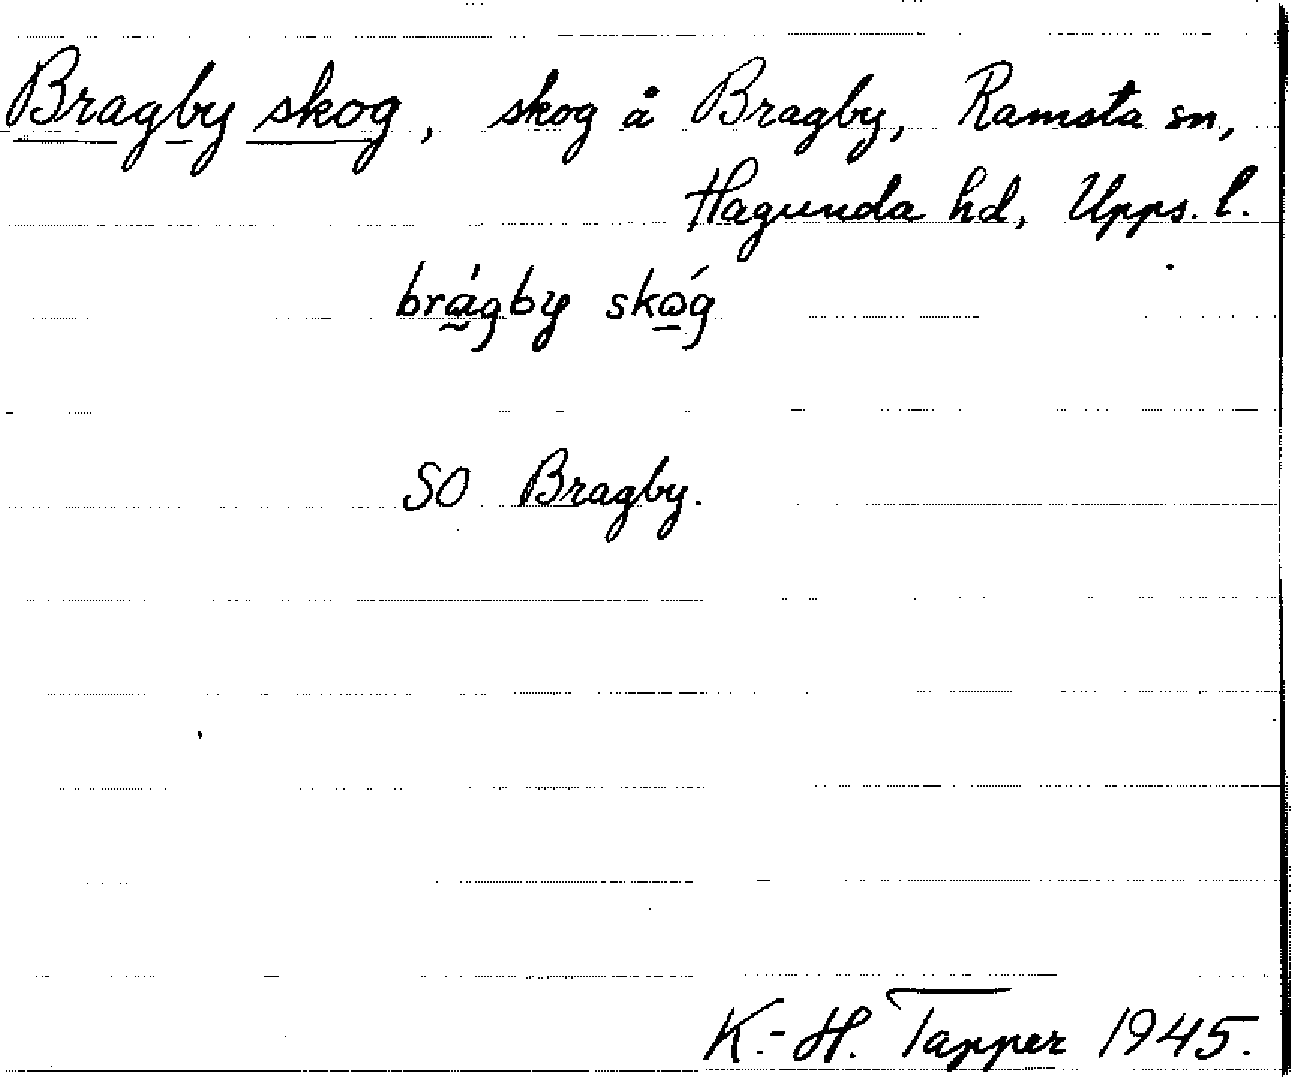 Bragby skog, skog å Bragby, Ramsta sn,
Hagunda hd, Upps. l.
brágby skǫ́g
SO Bragby.
K.-H. Tapper 1945.